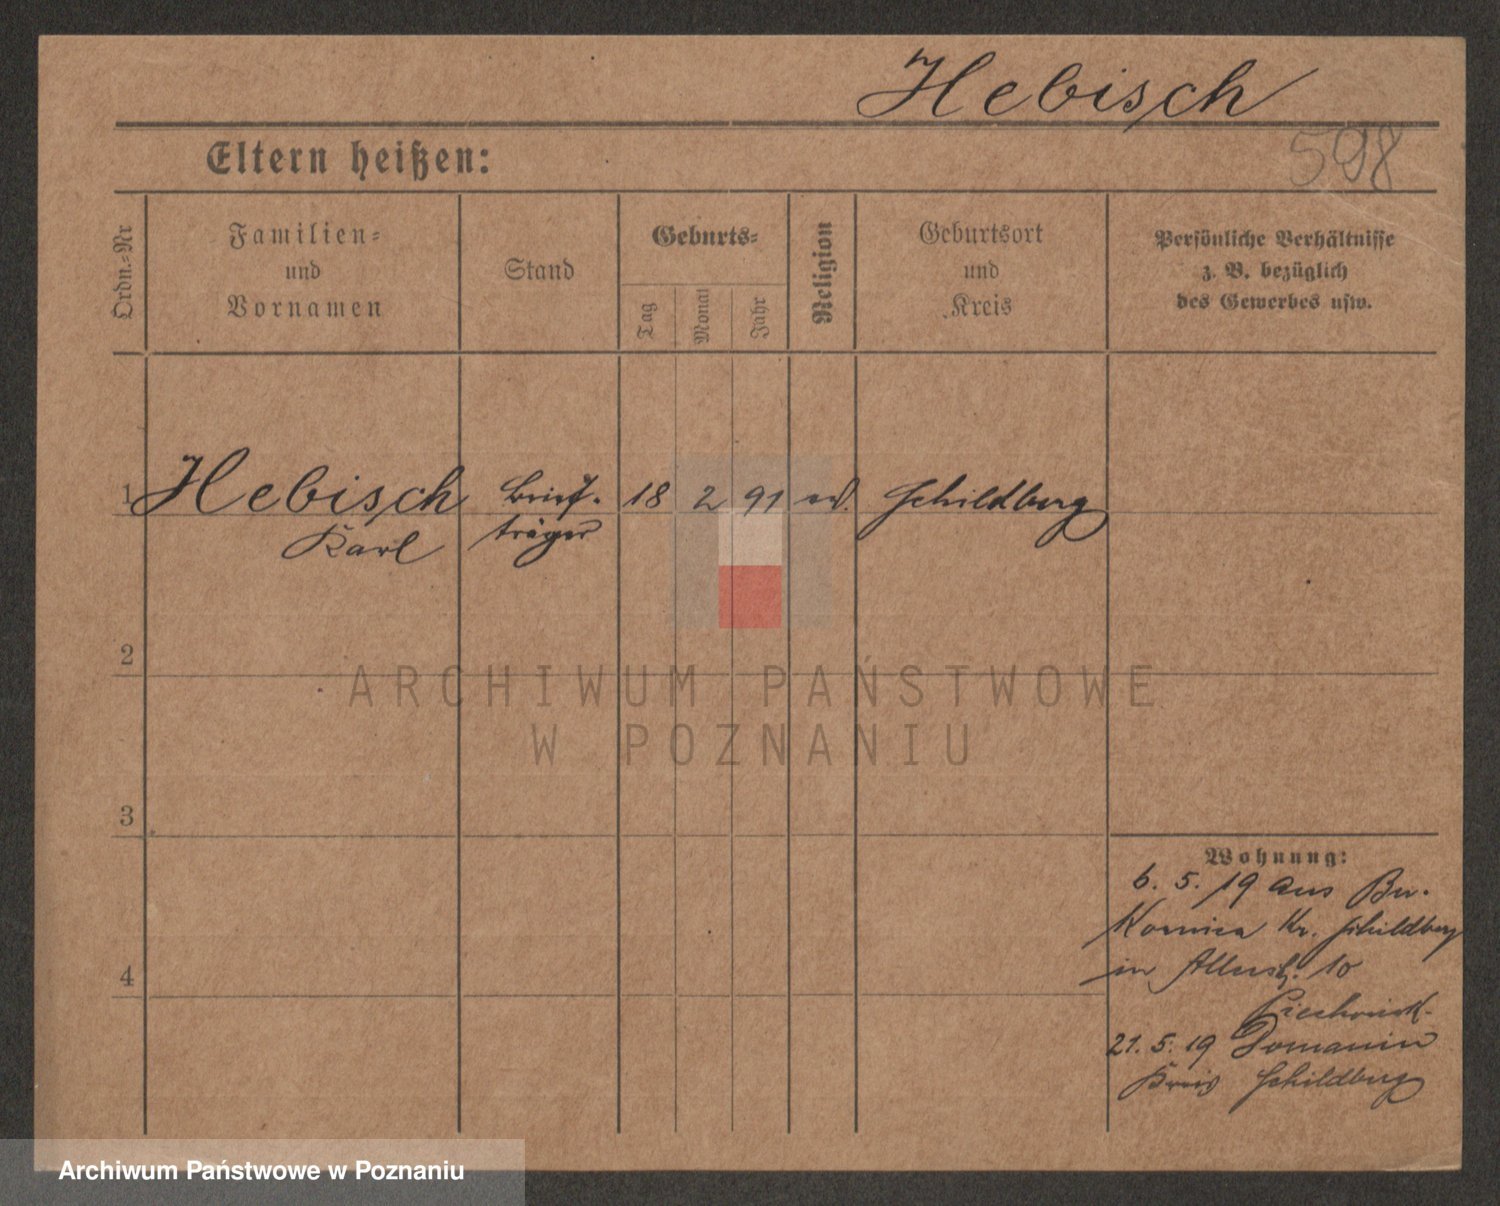 Hebisch
598
Eltern heißen:
Ordn.-Nr
Familien-
und
Vornamen
Stand
Geburts-
Tag
Monat
Jahr
Religion
Geburtsort
und
Kreis
Persönliche Verhältnisse
z. B. bezüglich
des Gewerbes usw.
1 Hebisch Brief- 18 2 91 ev. Schildberg
Karl träger
2
ARCHIWUM PAŃSTWOWE
W POZNANIU
3
Wohnung:
6. 5. 19 aus Bu-
Kornica Kr. Schildberg
4
in 10
21. 5. 19 Domanin
Kreis Schildberg
Archiwum Państwowe w Poznaniu